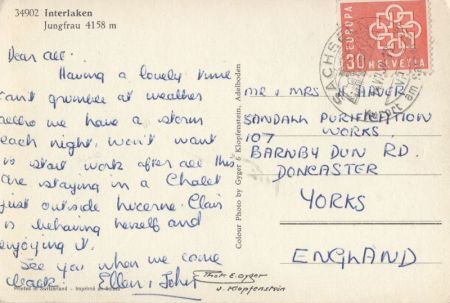 34902 Interlaken
Jungfrau 4158 m
Dear all.
Having a lovely time
can't grumble at weather
altho we have a storm
each night. Won't want
to start work after all this
Are staying in a Chalet
just outside Lucerne. Clair
is behaving herself and
enjoying it.
See you when we come
back. Ellen & John
Printed in Switzerland - Imprimé en Suisse
Colour Photo by Gyger & Klopfenstein, Adelboden
Thos. E. Gyger
u. Klopfenstein
EUROPA
30 HELVETIA
SACHS
Kurort am
MR & MRS H. HAVER
SANDALL PURIFICATION
WORKS.
107
BARNBY DUN RD.
DONCASTER
YORKS
ENGLAND